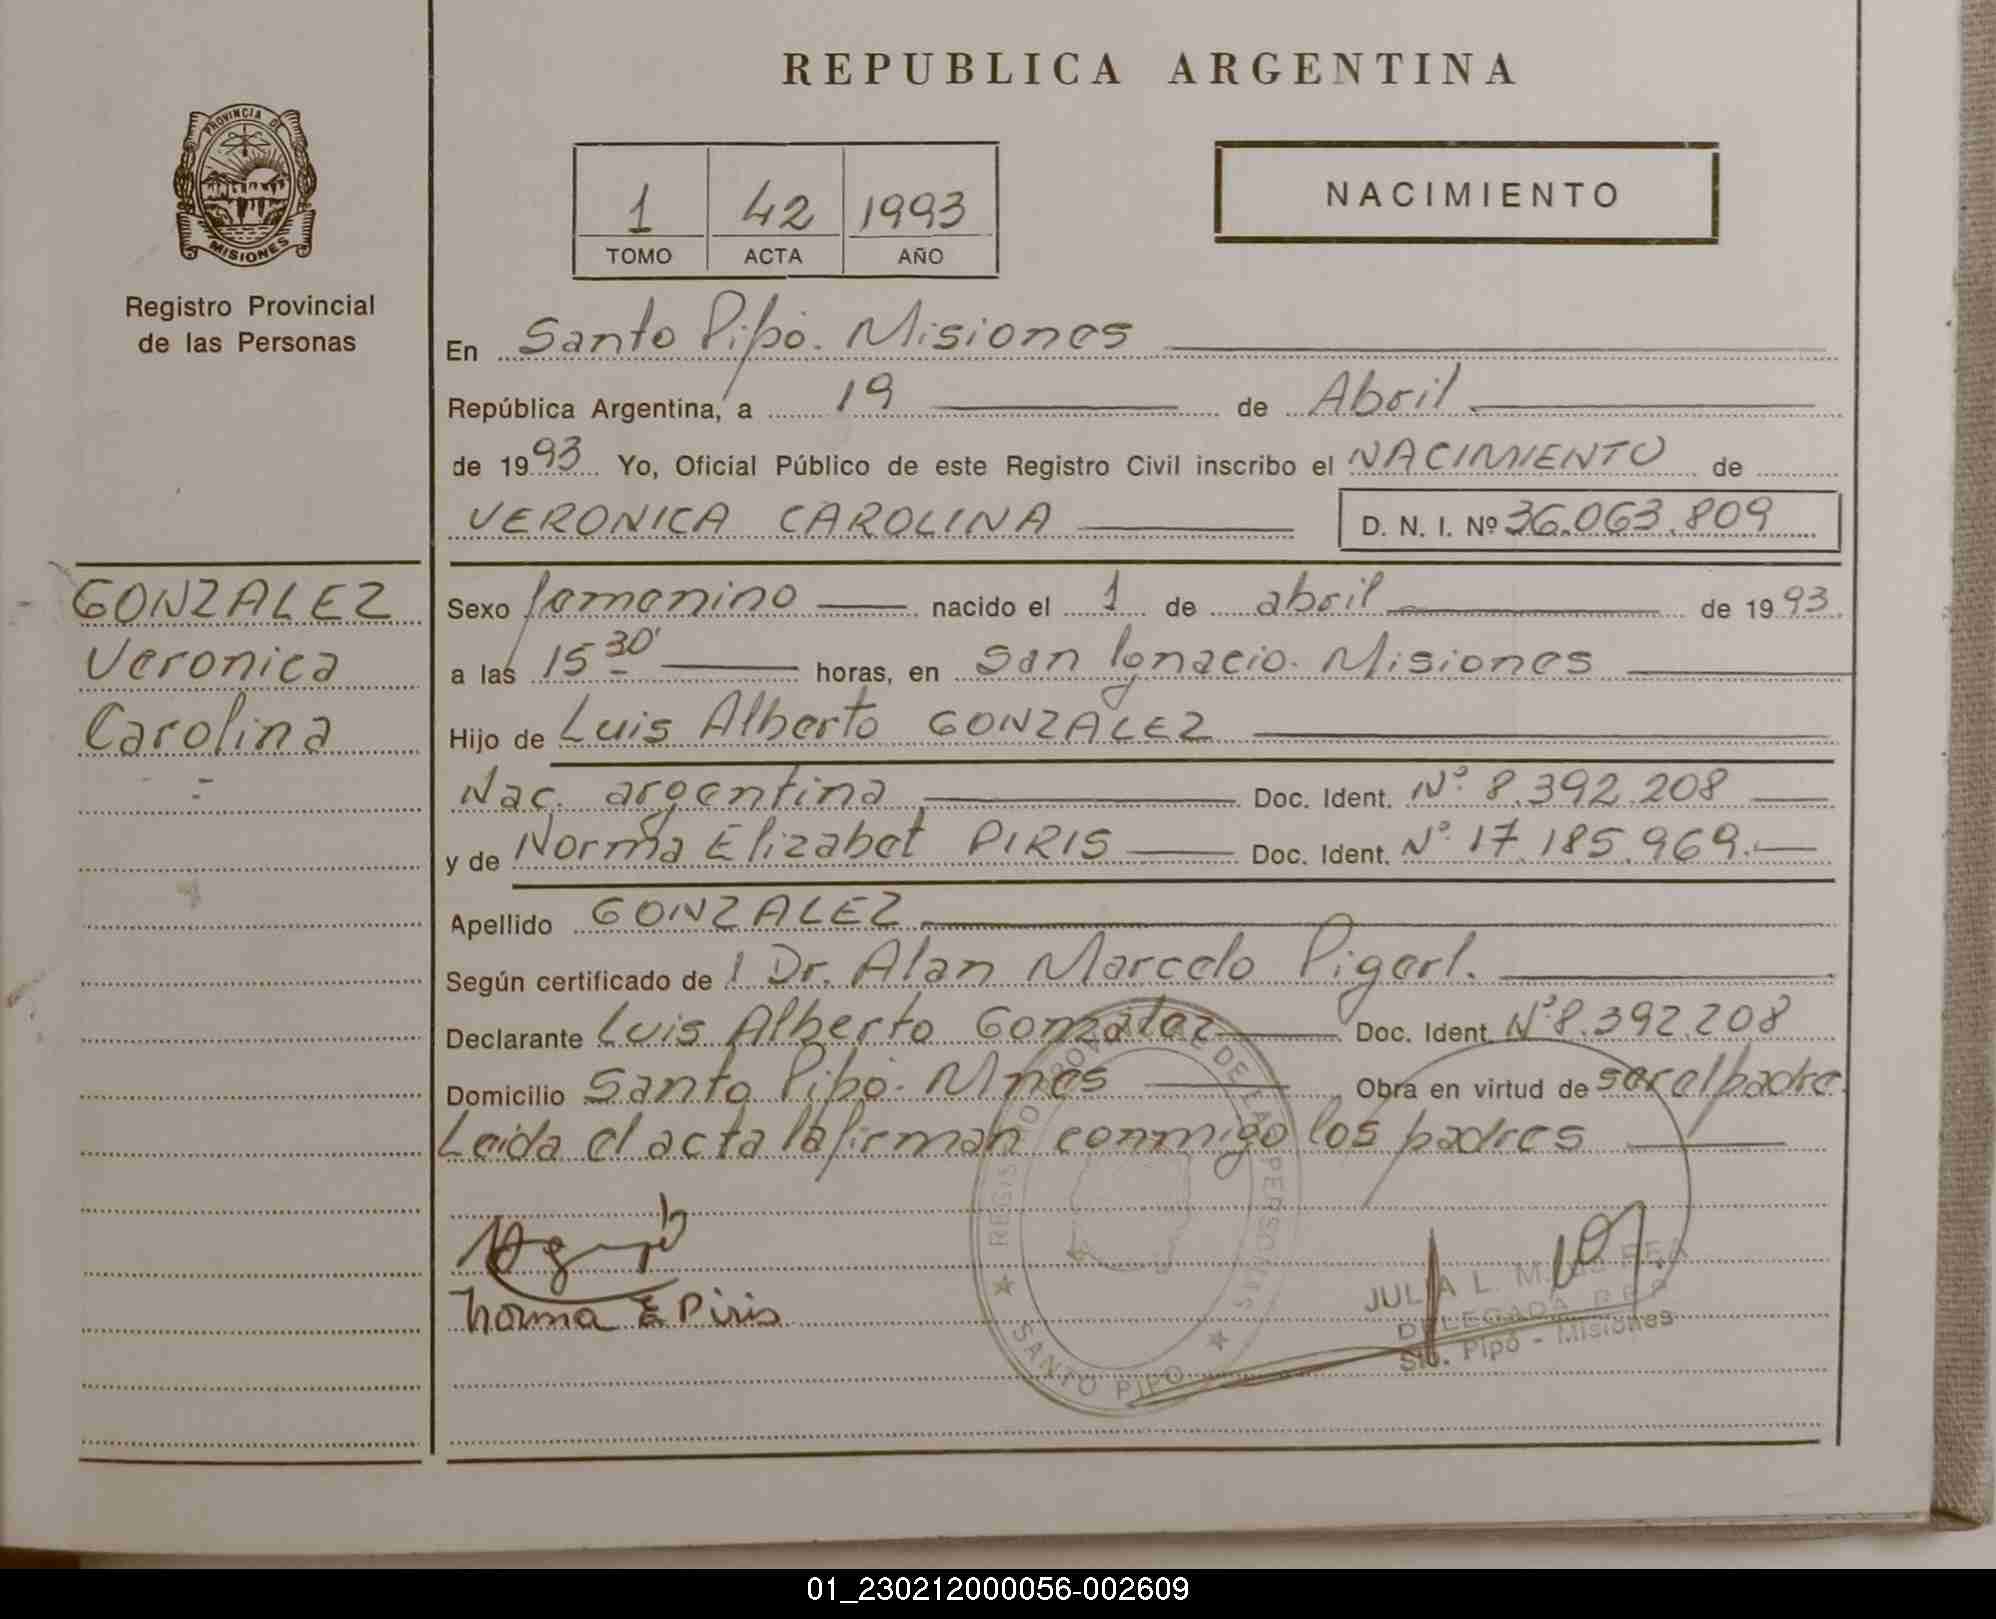 REPUBLICA ARGENTINA
PROVINCIA DE
MISIONES
Registro Provincial
de las Personas
1 42 1993
TOMO ACTA AÑO
NACIMIENTO
En Santo Pipó. Misiones
República Argentina, a 19 de Abril
de 1993 Yo, Oficial Público de este Registro Civil inscribo el NACIMIENTO de
VERONICA CAROLINA D. N. I. Nº 36.063.809
GONZALEZ
Veronica
Carolina
Sexo femenino nacido el 1 de abril de 1993
a las 15 30' horas, en San Ignacio. Misiones
Hijo de Luis Alberto GONZALEZ
Nac. argentina Doc. Ident. Nº 8.392.208
y de Norma Elizabet PIRIS Doc. Ident. Nº 17.185.969.
Apellido GONZALEZ
Según certificado de l Dr. Alan Marcelo Pigerl.
Declarante Luis Alberto Gonzalez Doc. Ident. Nº 8.392.208
Domicilio Santo Pipó. Mnes Obra en virtud de ser el padre.
Leida el acta la firman conmigo los padres
Norma E Piris
REGISTRO PROV DE LAS PERSONAS
SANTO PIPO
JULIA L.
DELEGADA R.P.P.
Sto. Pipó - Misiones
01_230212000056-002609